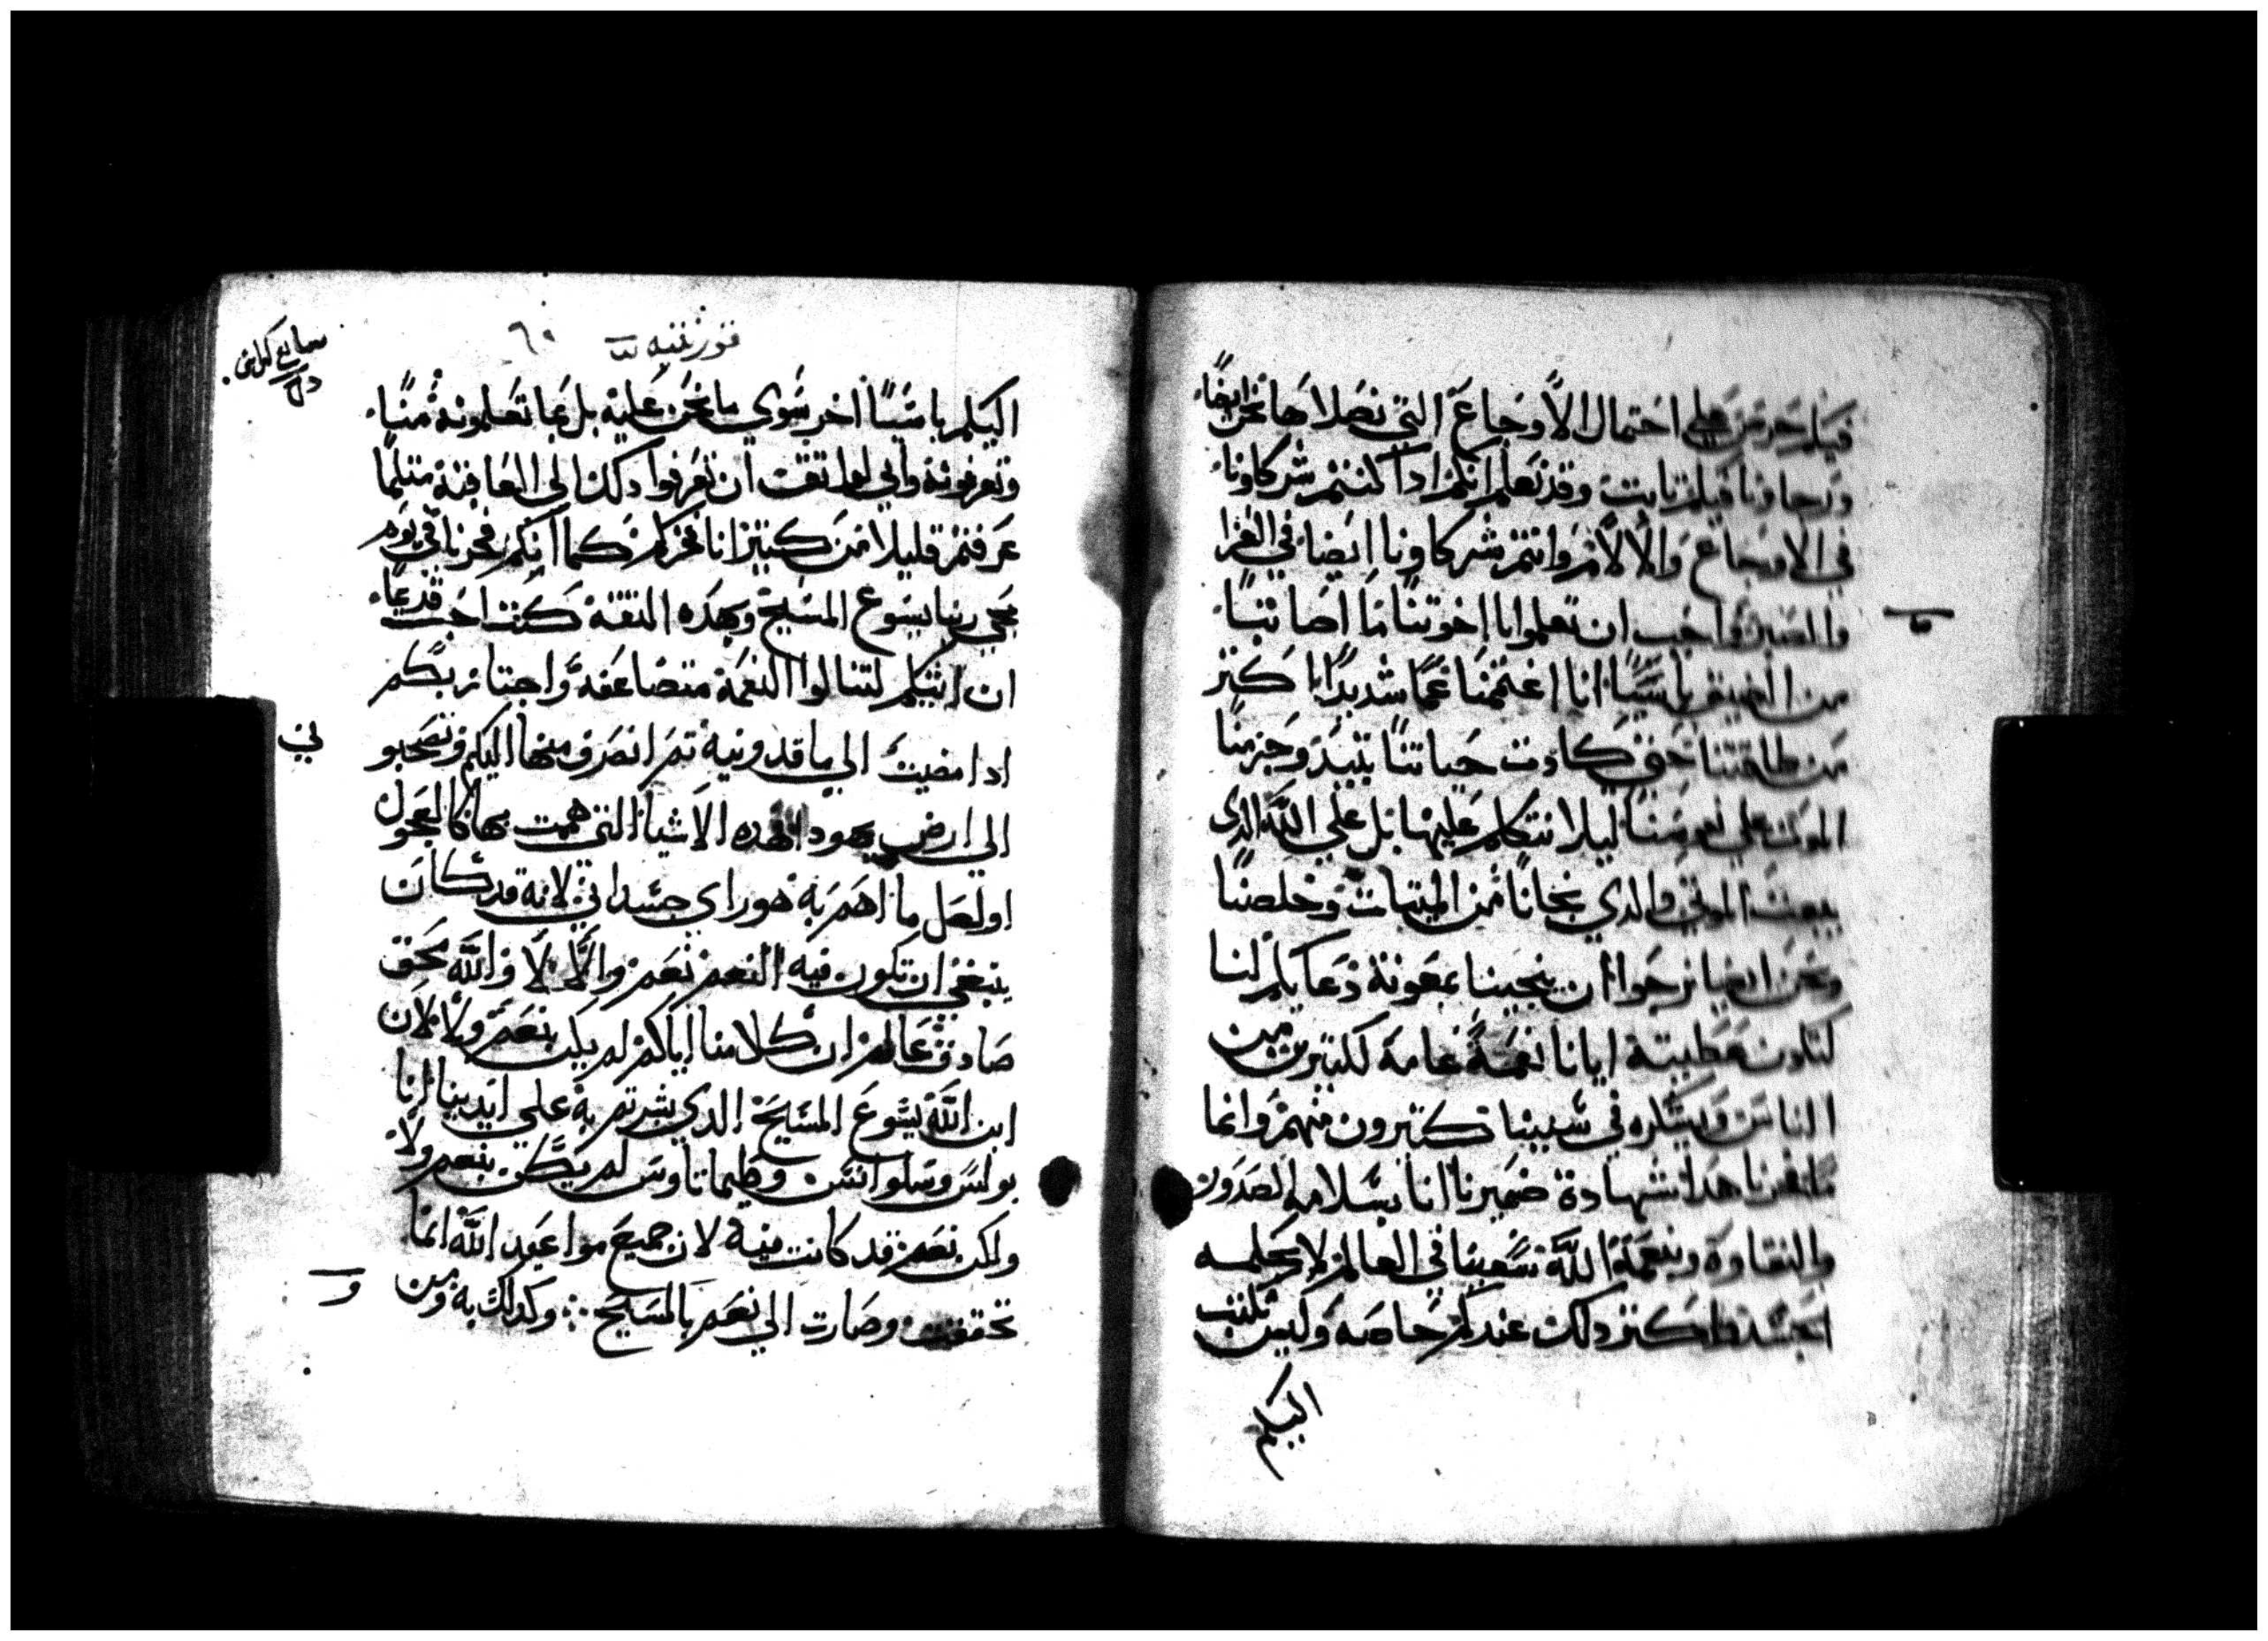 فيكم حرص علي احتمال الاوجاع التي نصلاها نحن ايضا
ورجاونا فيكم ثابت وقد نعلم انكم اذا كنتم شركاونا
في الاوجاع والالام وانتم شركاونا ايضا في العزا
والصبر وواجب ان تعلموا يا اخوتنا ما اصابنا
من الضيق باسيا انا اغتممنا غما شديدا باكثر
من طاقتنا حتي كادت حياتنا تبيد وجزمنا
الموت علي نفوسنا ليلا نتكل عليها بل علي الله الدي
يبعث الموتي والدي نجانا من الميتات وخلصنا
ونحن ايضا نرجوا ان ينجينا بمعونة دعايكم لنا
لتكون عطيته ايانا نعمة عامة لكثيرين من
الناس ويشكره في سببنا كثيرون منهم وانما
فخرنا هدا شهادة ضميرنا انا بسلامه الصدور
والنقاوه وبنعمة الله سعينا في العالم لا بحكمه
الجسد واكثر دلك عندكم خاصه وليس نكتب
اليكم
قورنثيه
اليكم باشيا اخر سوي ما نحن عليه بل بما تعلمونه منا
وتعرفونه واني لواثق ان تعرفوا دلك الي العاقبة مثلما
عرفتم قليلا من كثير انا فخركم كما انكم فخرنا في يوم
مجي ربنا يسوع المسيح وبهده الثقه كنت احب قديما
ان اتيكم لتنالوا النعمة متضاعفه واجتاز بكم
ادا مضيت الي ماقدونية ثم انصرف منها اليكم وتصحبو
الي ارض يهودا فهده الاشيا التي هممت بها كالعجول
اولعل ما اهم به هو راي جسداني لانه قد كان
ينبغي ان تكون فيه النعم نعم والا لا والله محق
صادق عالم ان كلامنا اياكم لم يكن بنعم ولا لان
ابن الله يسوع المسيح الدي بشرتم به علي ايدينا انا
بولس وسلوانس وطيماتاوس لم يكن بنعم ولا
ولكن نعم قد كانت فيه لان جميع مواعيد الله انما
تحققت وصارت الي نعم بالمسيح وكدلك به ومن